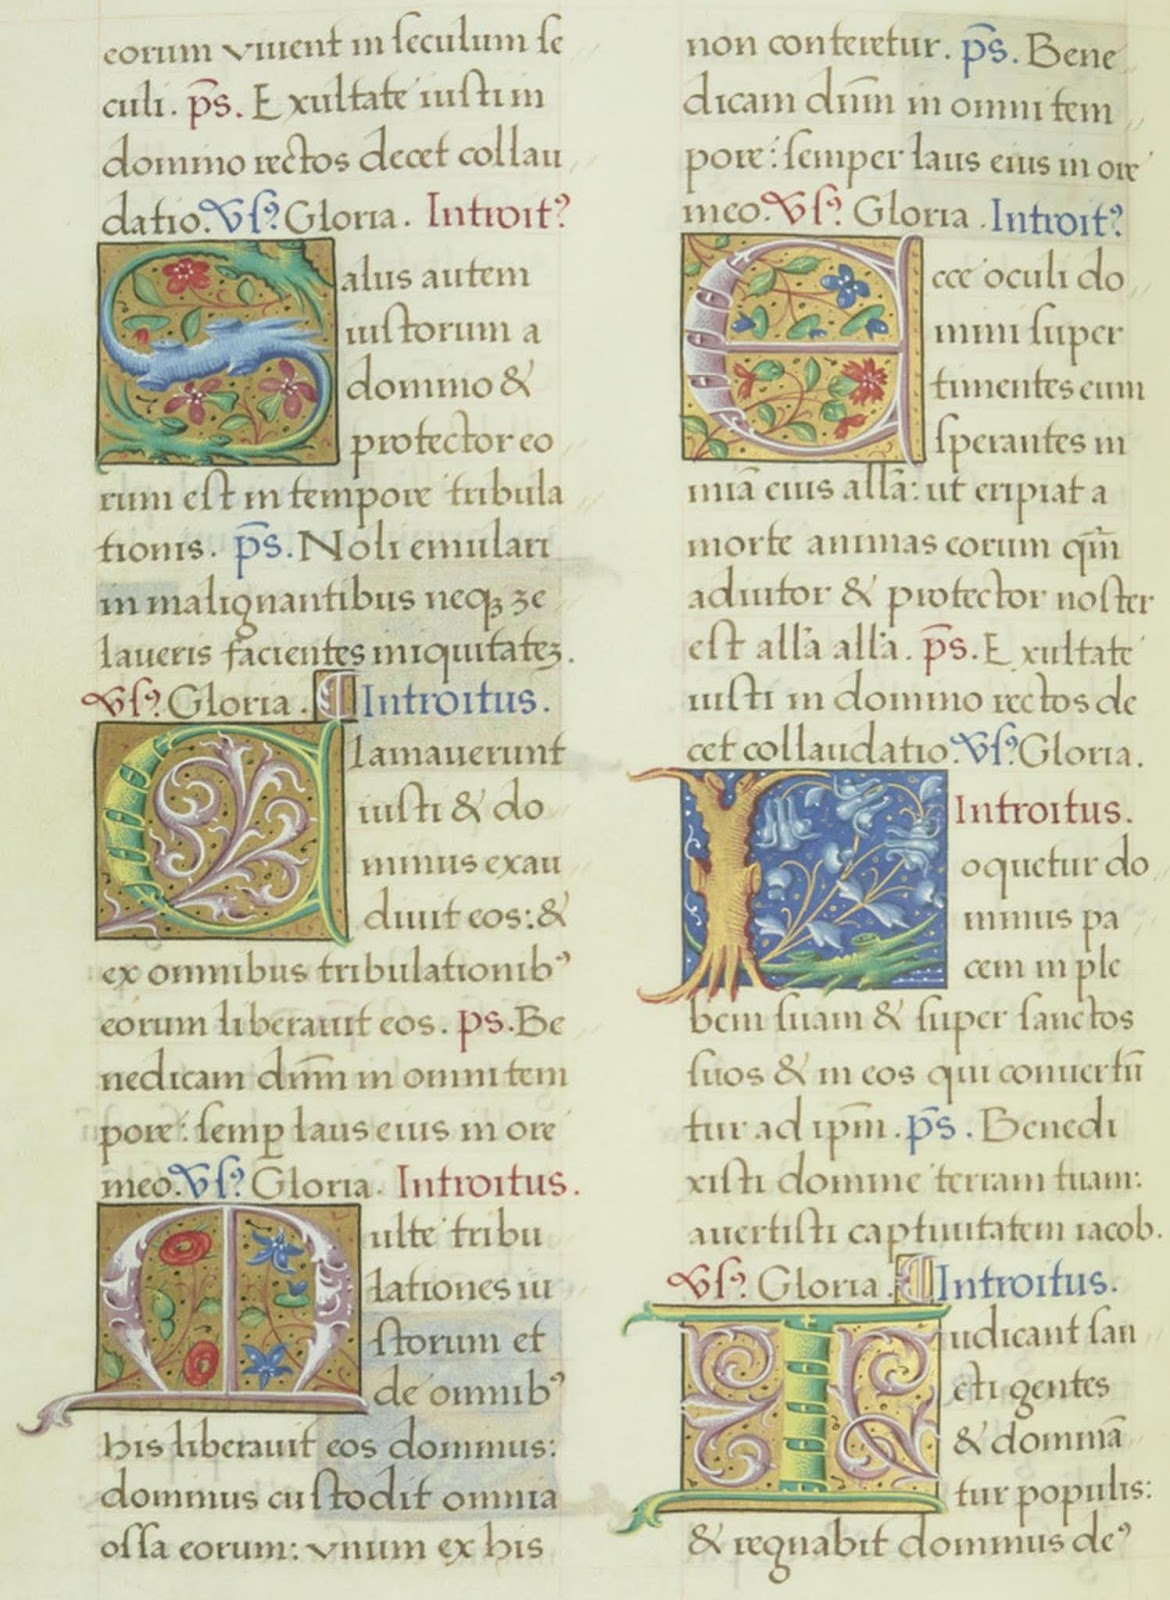 eorum vivent in seculum se
culi. p̄s. Exultate iusti in
domino rectos decet collau
datio. Vsꝰ. Gloria. Introit?
Salus autem
iustorum a
domino &
protector eo
rum est in tempore tribula
tionis. p̄s. Noli emulari
in malignantibus neqꝫ ze
laveris facientes iniquitateꝫ.
Vsꝰ. Gloria. ¶ Introitus.
Clamaverunt
iusti & do
minus exau
divit eos: &
ex omnibus tribulationibꝰ
eorum liberavit eos. ps. Be
nedicam dn̄m in omni tem
pore: semꝑ laus eius in ore
meo. Vsꝰ. Gloria. Introitus.
Multe tribu
lationes iu
storum et
de omnibꝰ
his liberavit eos dominus:
dominus custodit omnia
ossa eorum: vnum ex his
non conteretur. p̄s. Bene
dicam dn̄m in omni tem
pore: semper laus eius in ore
meo. Vsꝰ. Gloria. Introit?
Ecce oculi do
mini super
timentes eum
sperantes in
miā eius allā: ut eripiat a
morte animas eorum qm̄
adiutor & protector noster
est alla alla. p̄s. Exultate
iusti in domino rectos de
cet collaudatio. Vsꝰ. Gloria.
Introitus.
Loquetur do
minus pa
cem in ple
bem suam & super sanctos
suos & in eos qui convertū
tur ad ipm̄. p̄s. Benedi
xisti domine terram tuam:
avertisti captivitatem iacob.
Vsꝰ. Gloria. ¶ Introitus.
Iudicant san
cti gentes
& dominā
tur populis:
& regnabit dominus deꝰ